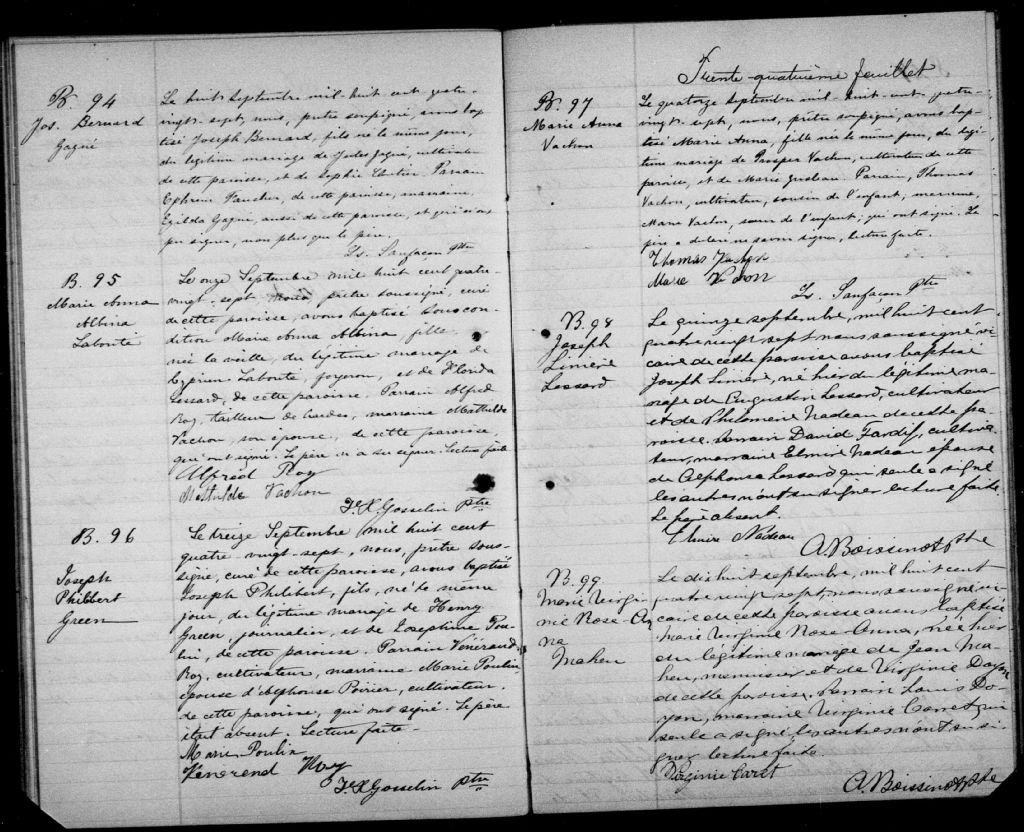 B. 94
Jos. Bernard
Gagné
Le huit septembre mil-huit cent quatre-
vingt-sept, nous, prêtre soussigné, avons bap
tisé Joseph Bernard, fils né le même jour,
du légitime mariage de Jules Gagné, cultivateur
de cette paroisse, et de Sophie Cloutier. Parrain
Ephrem Faucher, de cette paroisse, marraine,
Exilda Gagné, aussi de cette paroisse, et qui n'ont
pu signer, non plus que le père.
Ls. Sanfaçon Ptre
B. 95
Marie Anna
Albina
Labonté
Le onze Septembre mil huit cent quatre-
vingt-sept nous prêtre soussigné, curé
de cette paroisse, avons baptisé sous con-
dition Marie Anna Albina, fille,
née la veille, du légitime mariage de
Cyprien Labonté, forgeron, et de Florida
Lessard, de cette paroisse. Parrain Alfred
Roy, tailleur de hardes, marraine Mathilde
Vachon, son épouse, de cette paroisse,
qui ont signé. Le père n'a su signer. Lecture faite
Alfred Roy
Mathilde Vachon
F.X. Gosselin Ptre
B. 96
Joseph
Philibert
Green
Le treize Septembre mil huit cent
quatre-vingt-sept, nous, prêtre sous-
signé, curé de cette paroisse, avons baptisé
Joseph Philibert, fils, né le même
jour, du légitime mariage de Henry
Green, journalier, et de Josephine Pou-
lin, de cette paroisse. Parrain Vénérand
Roy, cultivateur, marraine Marie Poulin
épouse d'Alphonse Poirier, cultivateur.
de cette paroisse, qui ont signé. Le père
était absent. Lecture faite.
Marie Poulin
Vénérend Roy
F.X. Gosselin Ptre
Trente-quatrième feuillet
B. 97
Marie Anna
Vachon
Le quatorze septembre mil-huit-cent-quatre-
vingt-sept, nous, prêtre soussigné, avons bap-
tisé Marie Anna, fille née le même jour, du légi-
time mariage de Prosper Vachon, cultivateur de cette
paroisse, et de Marie Parrain, Thomas
Vachon, cultivateur, cousin de l'enfant; marraine,
Marie Vachon, sœur de l'enfant; qui ont signé. Le
père a déclaré ne savoir signer, lecture faite.
Thomas Vachon
Marie Vachon
Ls. Sanfaçon Ptre
B. 98
Joseph
Linière
Lessard
Le quinze septembre, mil huit cent
quatre vingt sept nous soussigné vi
caire de cette paroisse avons baptisé
Joseph Linière, né hier du légitime ma-
riage de Augustin Lessard, cultivateur
et de Philomène Nadeau de cette pa-
roisse. Parrain David Fardif, cultiva-
teur, marraine Elmire Nadeau épouse
de Alphonse Lessard qui seule a signé
les autres n'ont su signer lecture faite.
Le père absent.
Elmire Nadeau
A. Boissinot Ptre
B. 99.
Marie Virgi
nie Rose-An
na
Maheu
Le dishuit septembre, mil huit cent
quatre vingt sept, nous soussigné vi
caire de cette paroisse avons baptisé
Marie Virginie Rose-Anna, née hier
du légitime mariage de Jean Ma-
heu, menuisier et de Virginie Doyon
de cette paroisse. Parrain Louis Do-
yon, marraine Virginie Carret qui
seule a signé les autres n'ont su si-
gner lecture faite.
Virginie Caret
A. Boissinot Ptre